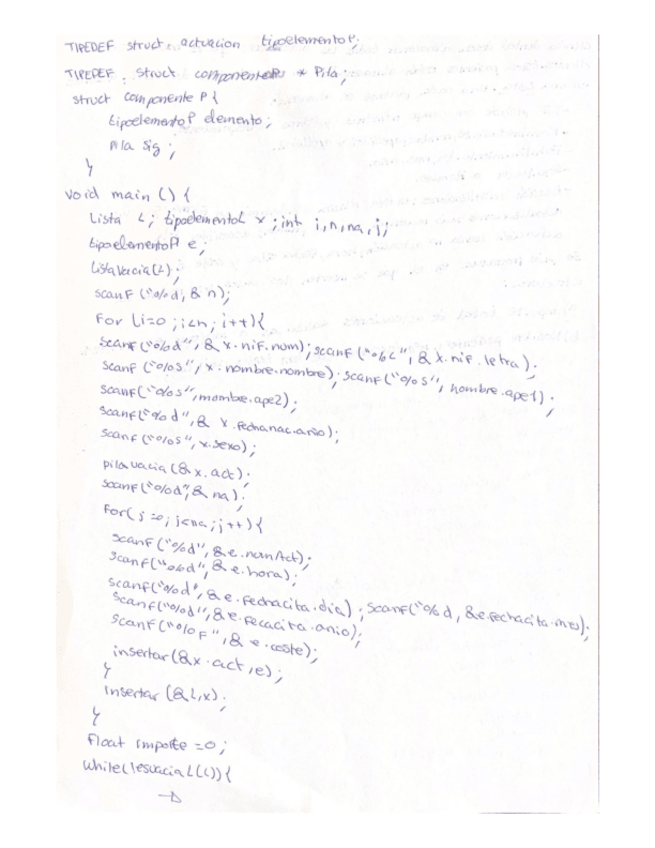 TIPEDEF struct actuacion tipoelementoP;
TIPEDEF struct componenteP * Pila;
struct componente P {
tipoelementoP elemento;
Pila sig;
}
void main () {
Lista L; tipoelementoL x; int i,n,na,j;
tipoelementoP e;
listavacia(L);
scanf ("%d, & n);
For (i=0; i<n; i++){
scanf("%d", & x.nif.num); scanf("%c", & x.nif.letra);
scanf ("%s", x.nombre.nombre); scanf("%s", nombre.ape1);
scanf("%s", .ape2);
scanf("%d", & x.fechanac.anio);
scanf("%s", x.sexo);
pilavacia (& x.act);
scanf("%d", & na);
For( j=0; j<na; j++){
scanf("%d", & e.numAct);
scanf("%d", & e.hora);
scanf("%d", & e.fechacita.dia); scanf("%d, &e.fechacita.mes);
scanf("%d", & e.fecacita.anio);
scanf("%F", & e.coste);
insertar(&x.act,e);
}
insertar (&L,x);
}
float importe =0;
While(!esvaciaL(L)){
→